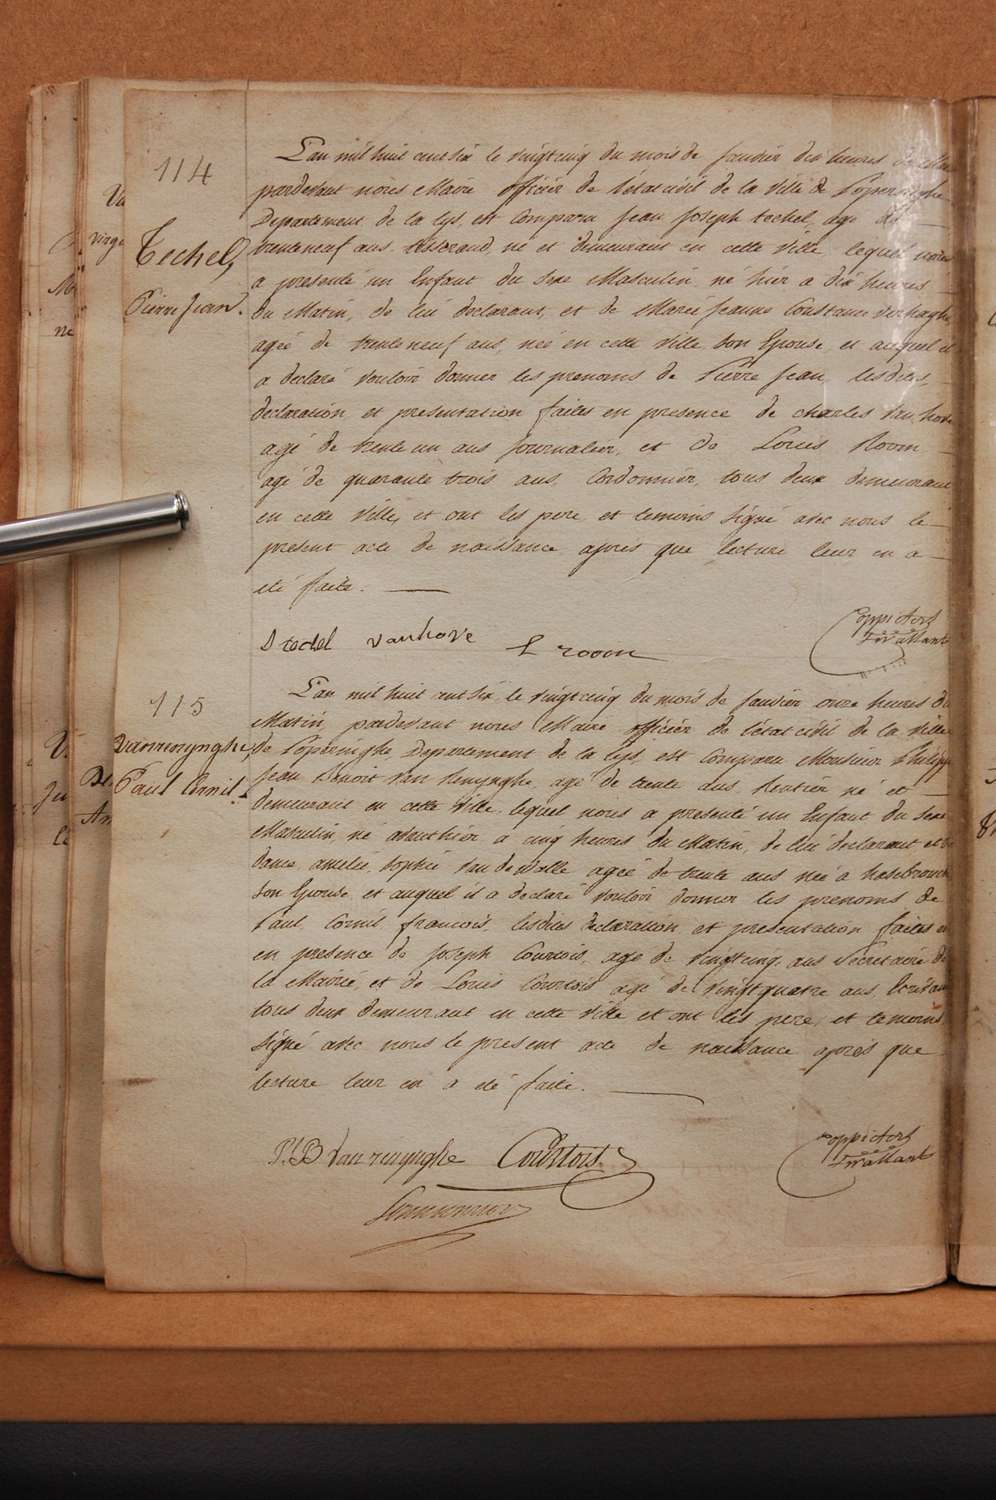 114
L'an mil huit cent six le vingtcinq du mois de Janvier dix heures
pardevant nous Maire officier de l'état civil de la Ville de Poperinghe
Département de la Lys, est Comparu Jean Joseph techel, agé de
Techel,
trenteneuf ans, né et demeurant en cette Ville, lequel nous
a presenté un Enfant du Sexe Masculin, né hier a dix heures
Pierre Jean.
du Matin, de lui declarant, et de Marie Jeanne Constance
agée de trenteneuf ans, née en cette Ville Son Epouse, et auquel il
a declaré vouloir donner les prenoms de Pierre Jean, lesdites
declaration et presentation faites en presence de charles Van hove
agé de trente un ans Journalier, et de Louis Room
agé de quarante trois ans, Cordonnier, tous deux demeurant
en cette Ville, et ont les pere et temoins Signé avec nous le
present acte de naissance après que lecture leur en a
été faite.
techel vanhove
L room
115
L'an mil huit cent six, le vingtcinq du mois de Janvier onze heures du
Matin, pardevant nous Maire officier de l'état civil de la Ville
de Poperinghe, Departement de la Lys, est Comparu Monsieur Philippe
Vanrenynghe,
Jean Benoit Van Renynghe, agé de trente ans, Rentier né et
Paul Cornil.
demeurant en cette Ville, lequel nous a presenté un Enfant du Sexe
Masculin, né avanthier à cinq heures du Matin, de lui declarant et de
amelie, Sophie Van de Walle agée de trente ans née à hasebrouck
Son Epouse, et auquel il a declaré vouloir donner les prenoms de
Paul, Cornil, francois, lesdites declaration et presentation faites en
en presence de Joseph Courtois, agé de vingtcinq ans Secretaire de
la Mairie, et de Louis Courtois agé de vingtquatre ans, Ecrivain
tous deux demeurant en cette Ville et ont les pere, et temoins
Signé avec nous le present acte de naissance après que
lecture leur en a été faite.
Van renynghe Courtois